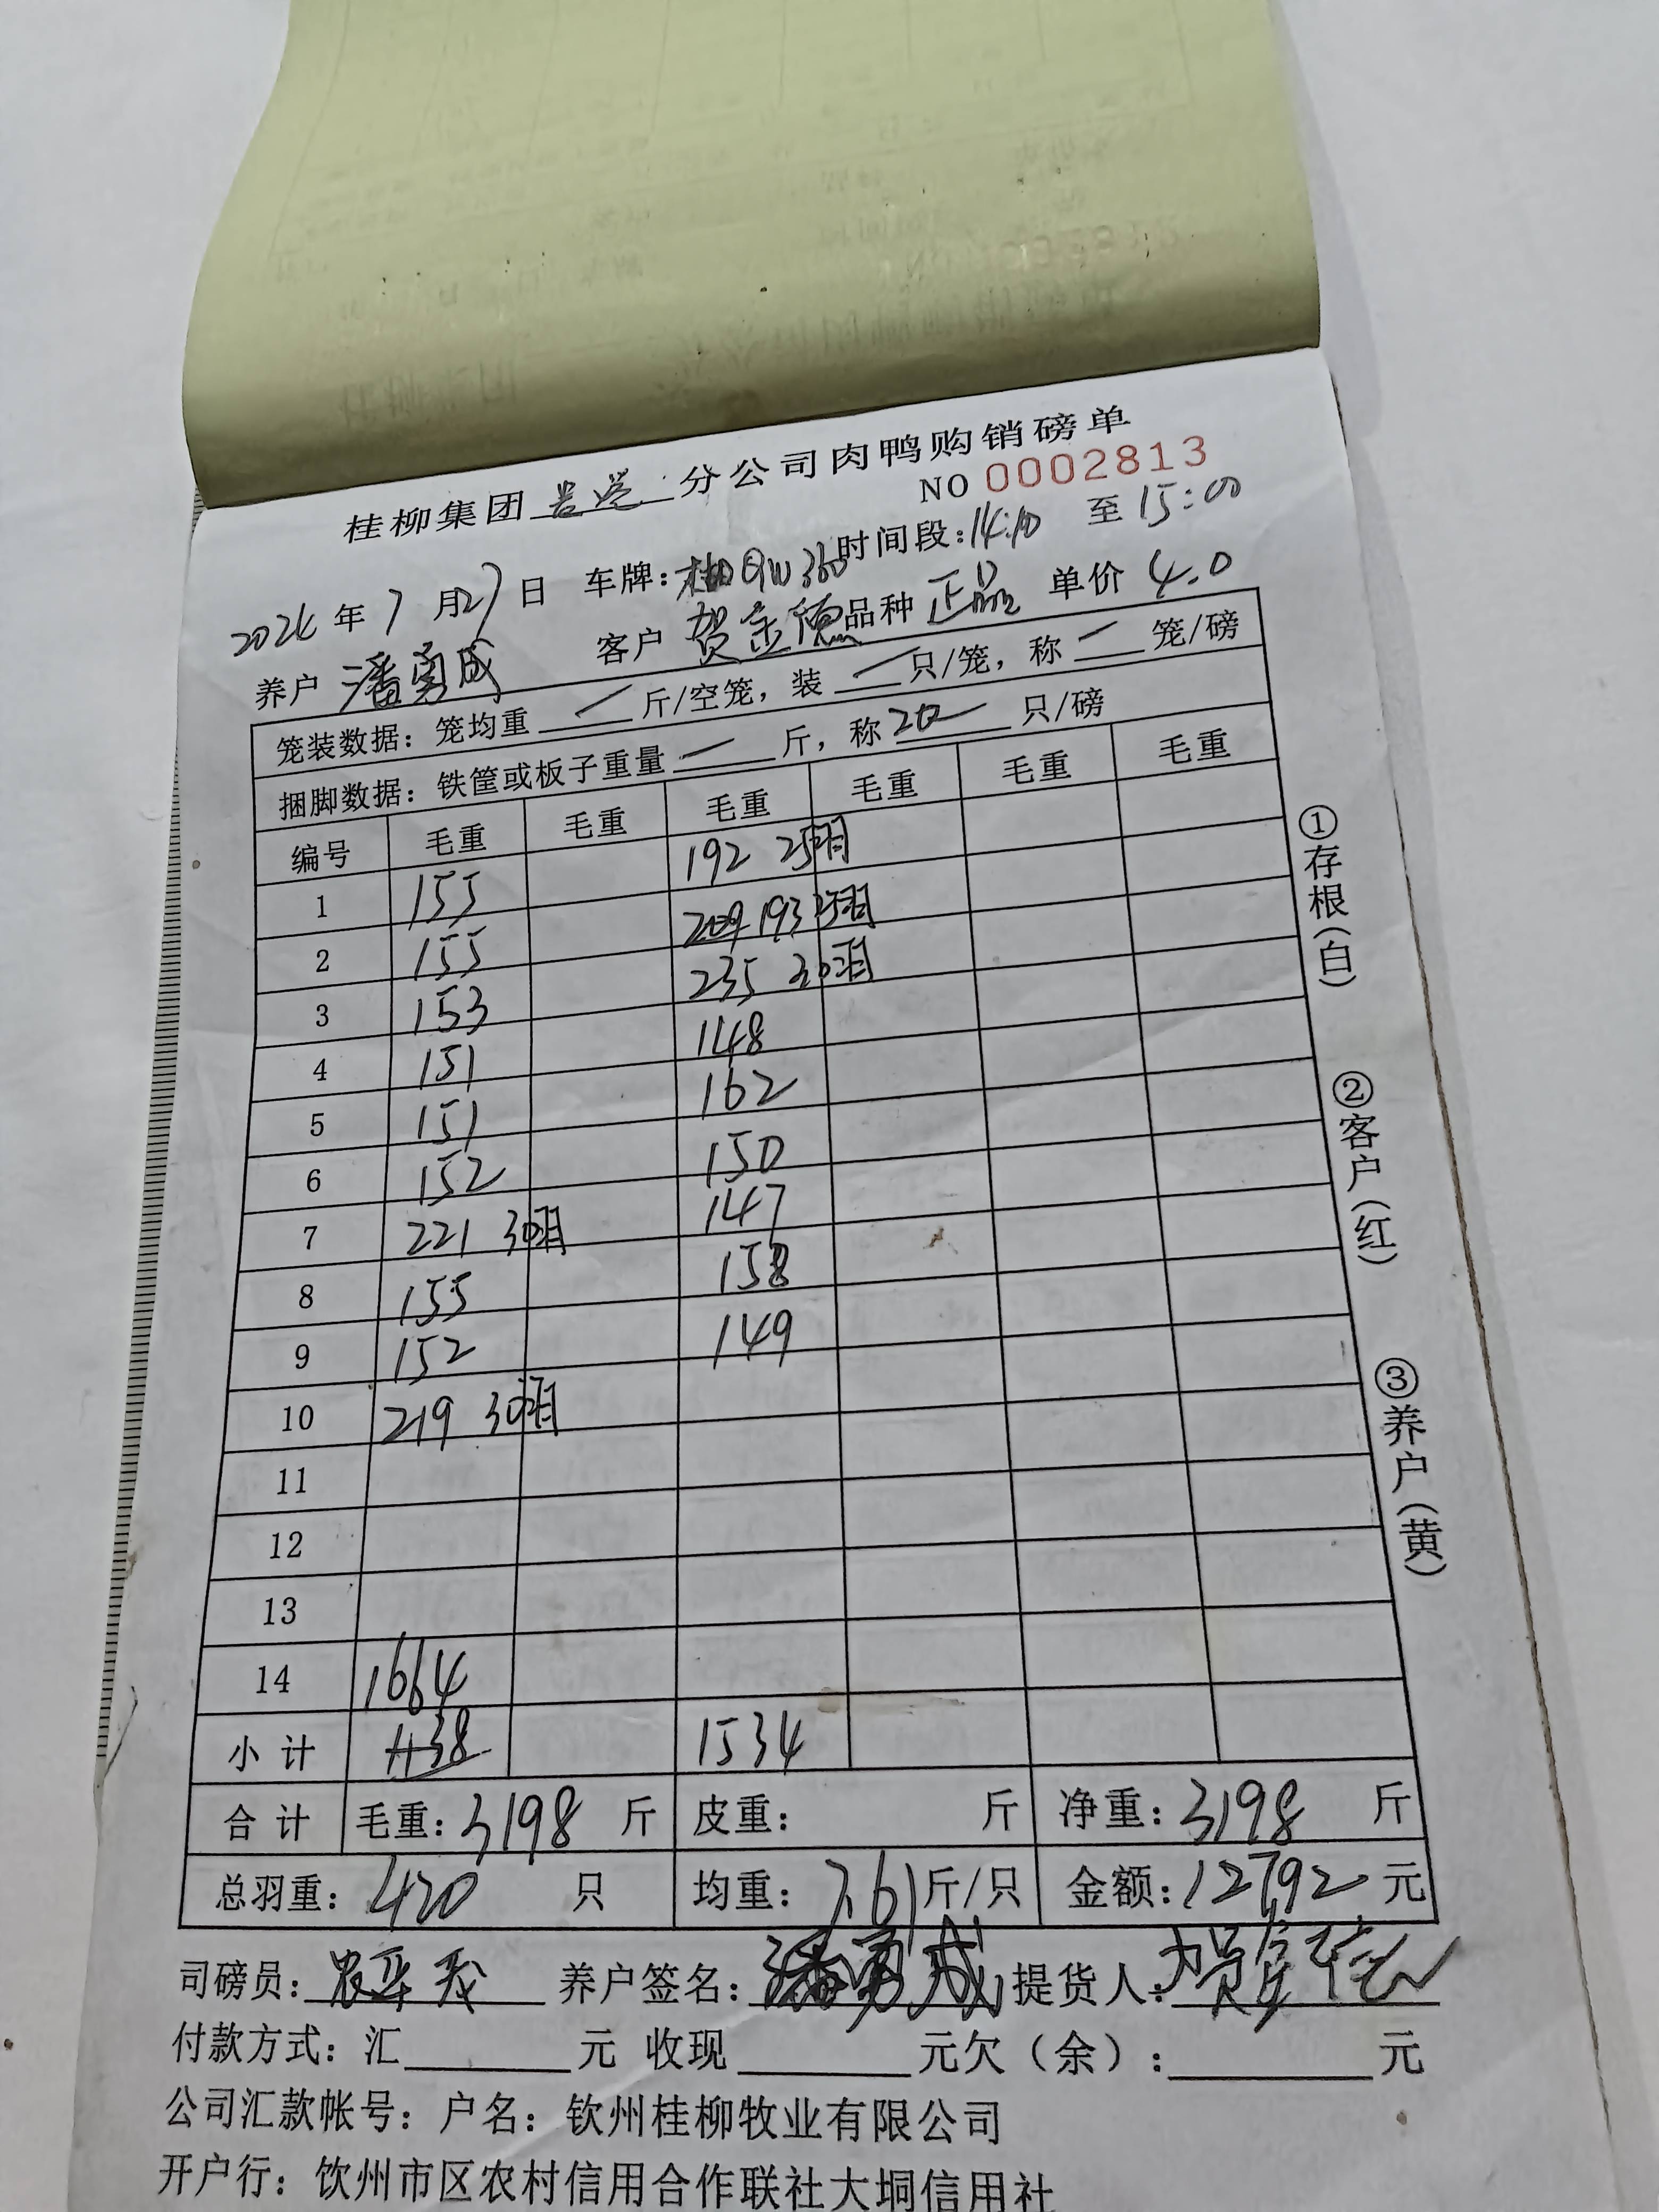 桂柳集团贵港分公司肉鸭购销磅单
NO 0002813
2024年7月27日 车牌:桂QW360时间段:14:10 至 15:00
养户 潘勇成 客户 贺金德 品种 正品 单价 4.0
笼装数据：笼均重 一 斤/空笼，装 一 只/笼，称 一 笼/磅
捆脚数据：铁筐或板子重量 一 斤，称 20 只/磅
编号 毛重 毛重 毛重 毛重 毛重 毛重
1 155 192 25只
2 155 209 193 25只
3 153 235 30只
4 151 148
5 151 162
6 152 150
7 221 30只 147
8 155 158
9 152 149
10 219 30只
11
12
13
14 1664
小计 1138 1534
合计 毛重：3198 斤 皮重： 斤 净重：3198 斤
总羽重：420 只 均重：7.61斤/只 金额：12792元
司磅员： 养户签名：潘勇成 提货人：贺金德
付款方式：汇 元 收现 元欠（余）： 元
公司汇款帐号：户名：钦州桂柳牧业有限公司
开户行：钦州市区农村信用合作联社大垌信用社
①存根（白）
②客户（红）
③养户（黄）